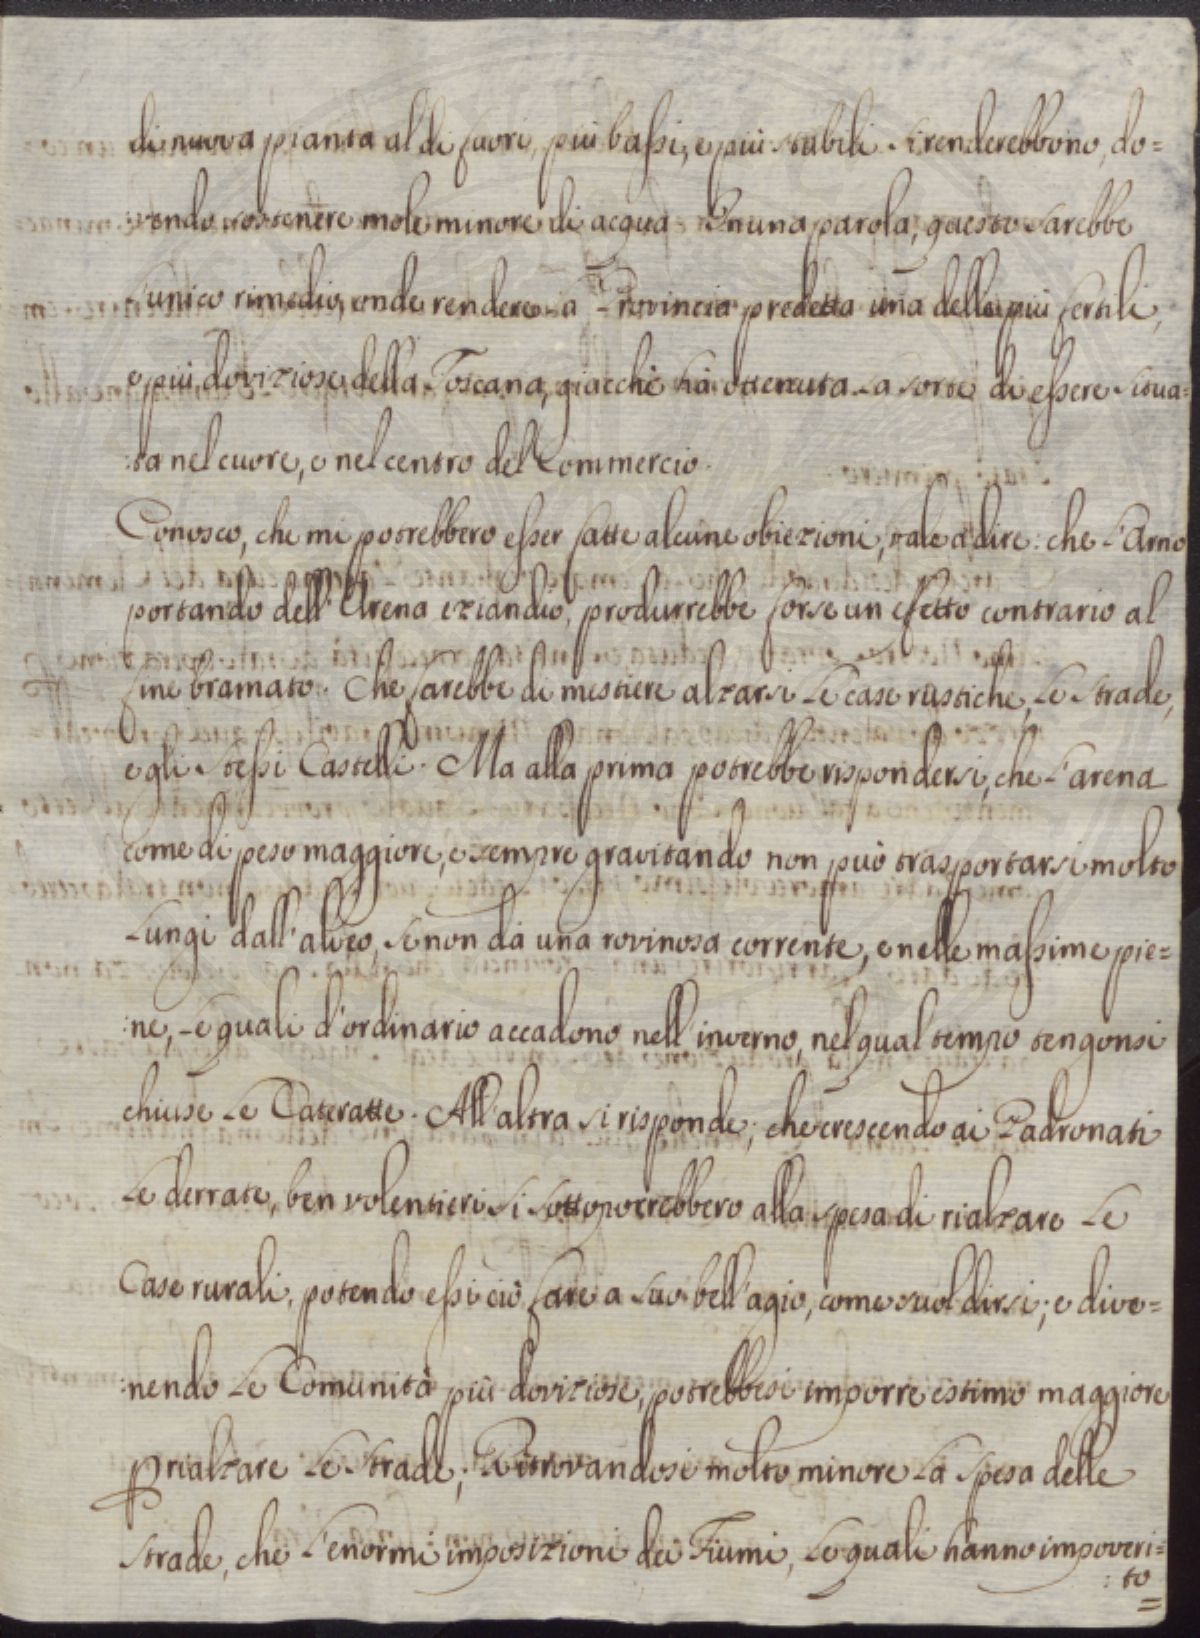 di nuova pianta al di fuori, più bassi, e più stabili si renderebbono, do=
:vendo sostenere mole minore di acqua. In una parola, questo sarebbe
l'unico rimedio, onde rendere la Provincia predetta una delle più fertili,
e più doviziose della Toscana, giacchè hà ottenuta la sorte di essere situa=
:ta nel cuore, e nel centro del Commercio.
Conosco, che mi potrebbero esser fatte alcune obiezioni, vale à dire: che l'Arno
portando dell'Arena eziandio, produrrebbe forse un efetto contrario al
fine bramato. Che sarebbe di mestiere alzarsi le case rustiche, le Strade,
e gli stessi Castelli. Ma alla prima potrebbe rispondersi, che l'arena
come di peso maggiore, e sempre gravitando non può trasportarsi molto
lungi dall'alveo, se non da una rovinosa corrente, e nelle massime pie=
:ne, le quali d'ordinario accadono nell'inverno, nel qual tempo tengonsi
chiuse le Cateratte. All'altra si risponde, che crescendo ai Padronati
le derrate, ben volentieri si sottoporrebbero alla spesa di rialzare le
Case rurali, potendo essi ciò fare a suo bell'agio, come suol dirsi; e dive=
:nendo le Comunità più doviziose, potrebbesi imporre estimo maggiore
p rialzare le Strade; Ritrovandosi molto minore la Spesa delle
Strade, che l'enormi imposizioni dei Fiumi, le quali hanno impoveri=
:to